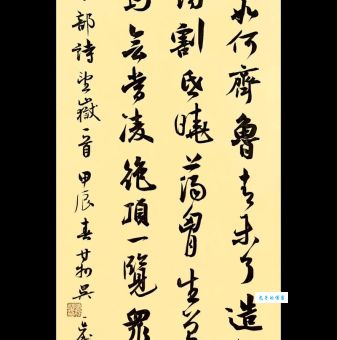 如何齊魯青未了造
割昏曉蕩胷生
鳥會當凌絕頂一覽眾
部詩望嶽一首甲辰春